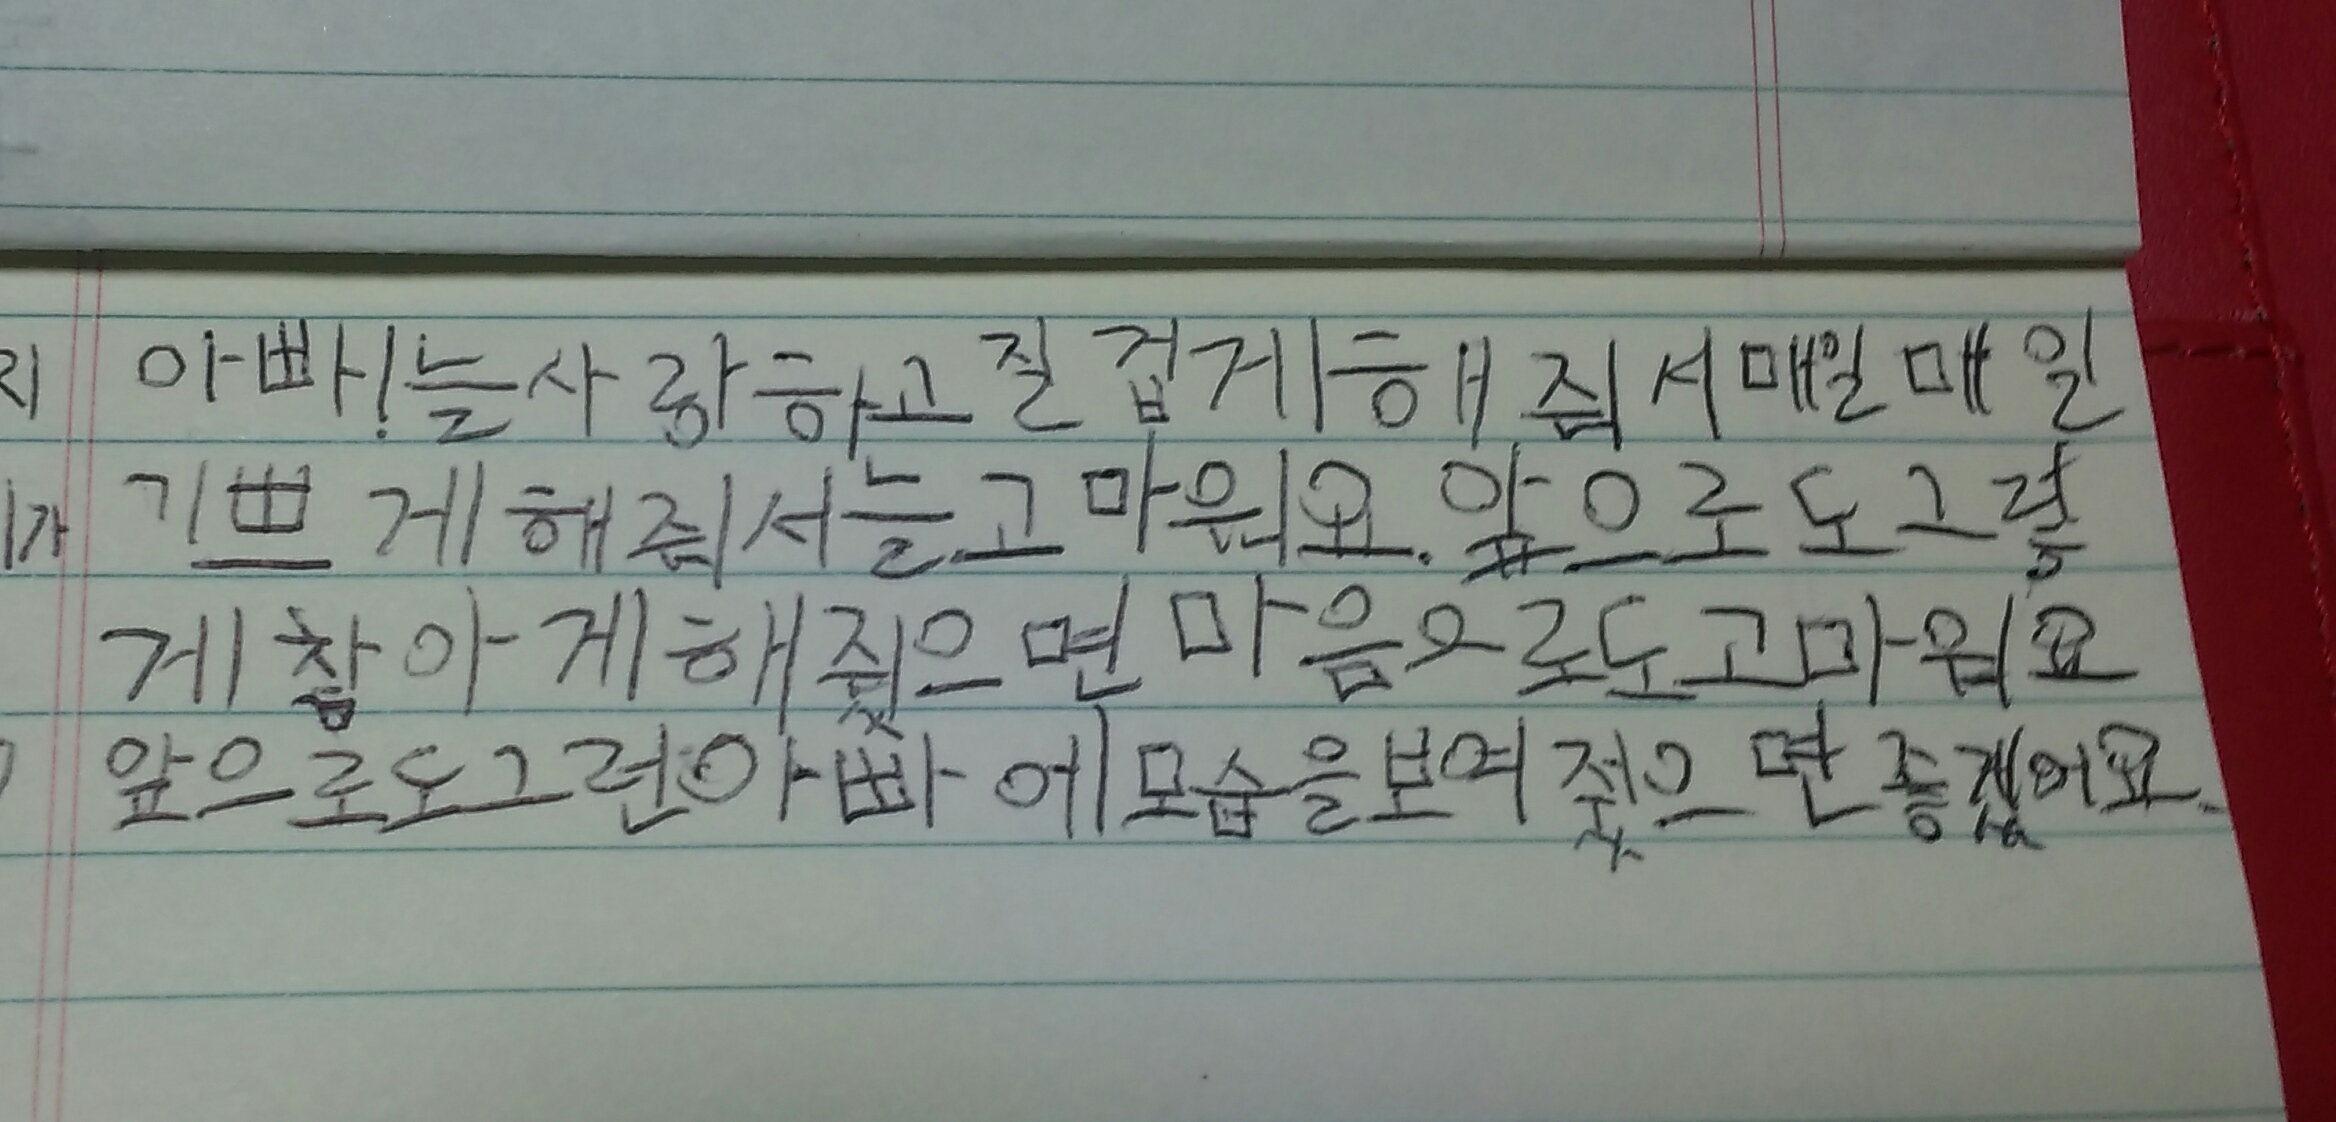 리 아빠! 늘 사랑하고 질겁게 해줘서 매일매일
가 기쁘게 해줘서 늘 고마워요. 앞으로도 그렇
게 참아게 해줬으면 마음으로도 고마워요
앞으로도 그런 아빠에 모습을 보여줫으면 좋겠어요.